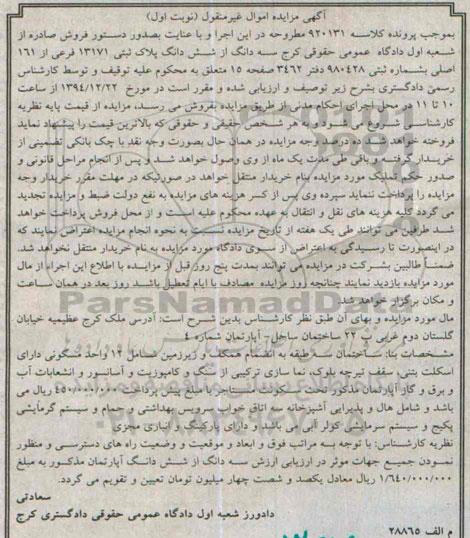 آگهی مزایده اموال غیرمنقول (نوبت اول)
بموجب پرونده کلاسه ۹۲۰۱۳۱ مطروحه در این اجرا و با عنایت بصدور دستور فروش صادره از
شعبه اول دادگاه عمومی حقوقی کرج سه دانگ از شش دانگ پلاک ثبتی ۱۳۱۷۱ فرعی از ۱۶۱
اصلی بشماره ثبتی ۹۸۰۴۲۸ دفتر ۳۴۶۲ صفحه ۱۵ متعلق به محکوم علیه توقیف و توسط کارشناس
رسمی دادگستری بشرح زیر توصیف و ارزیابی شده و مقرر است در مورخ ۱۳۹۴/۱۲/۲۲ از ساعت
۱۰ تا ۱۱ در محل اجرای احکام مدنی از طریق مزایده بفروش می رسد، مزایده از قیمت پایه نظریه
کارشناسی شروع می شود و به هر شخص حقیقی و حقوقی که بالاترین قیمت را پیشنهاد نماید
فروخته خواهد شد ده درصد وجه مزایده در همان حال بصورت وجه نقد یا چک بانکی تضمینی از
خریدار گرفته و باقی طی مدت یک ماه از وی وصول خواهد شد و پس از انجام مراحل قانونی و
صدور حکم تملیک مورد مزایده بنام خریدار منتقل خواهد در صورتیکه در مهلت مقرر خریدار وجه
مزایده را پرداخت ننماید سپرده وی پس از کسر هزینه های مزایده به نفع دولت ضبط و مزایده تجدید
می گردد کلیه هزینه های نقل و انتقال به عهده محکوم علیه است و از محل فروش پرداخت خواهد
شد طرفین می توانند طی یک هفته از تاریخ مزایده نسبت به نحوه انجام مزایده اعتراض نمایند که
در اینصورت تا رسیدگی به اعتراض از سوی دادگاه مورد مزایده به نام خریدار منتقل نخواهد شد.
ضمناً طالبین بشرکت در مزایده می توانند بمدت پنج روز قبل از مزایده با اطلاع این اجراء از مال
مورد مزایده بازدید نمایند چنانچه روز مزایده مصادف با ایام تعطیل باشد روز بعد در همان ساعت
و مکان برگزار خواهد شد.
مال مورد مزایده و بهای آن طبق نظر کارشناس بدین شرح است: آدرس ملک کرج عظیمیه خیابان
گلستان دوم غربی پ ۲۲ ساختمان ساحل- آپارتمان شماره ۴
مشخصات بنا: ساختمان طبقه به انضمام همکف و زیرزمین شامل ۱۲ واحد مسکونی دارای
اسکلت بتنی، سقف تیرچه بلوک، نما سازی ترکیبی از سنگ و کامپوزیت و آسانسور و انشعابات آب
و برق و گاز آپارتمان مذکور تحت سکونت مستاجر با مبلغ پیش پرداخت ۴۵۰/۰۰۰/۰۰۰ ریال می
باشد و شامل هال و پذیرایی آشپزخانه سه اتاق خواب سرویس بهداشتی و حمام و سیستم گرمایشی
پکیج و سیستم سرمایشی کولر آبی می باشد و دارای پارکینگ و انباری مجزی
نظریه کارشناس: با توجه به مراتب فوق و ابعاد و موقعیت و وضعیت راه های دسترسی و منظور
نمودن جمیع جهات موثر در ارزیابی ارزش سه دانگ از شش دانگ آپارتمان مذکور به مبلغ
۱/۶۴۰/۰۰۰/۰۰۰ ریال معادل یکصد و شصت چهار میلیون تومان تعیین و تقویم می گردد.
سعادتی
دادورز شعبه اول دادگاه عمومی حقوقی دادگستری کرج
م الف ۲۸۸۶۵
ParsNamadData